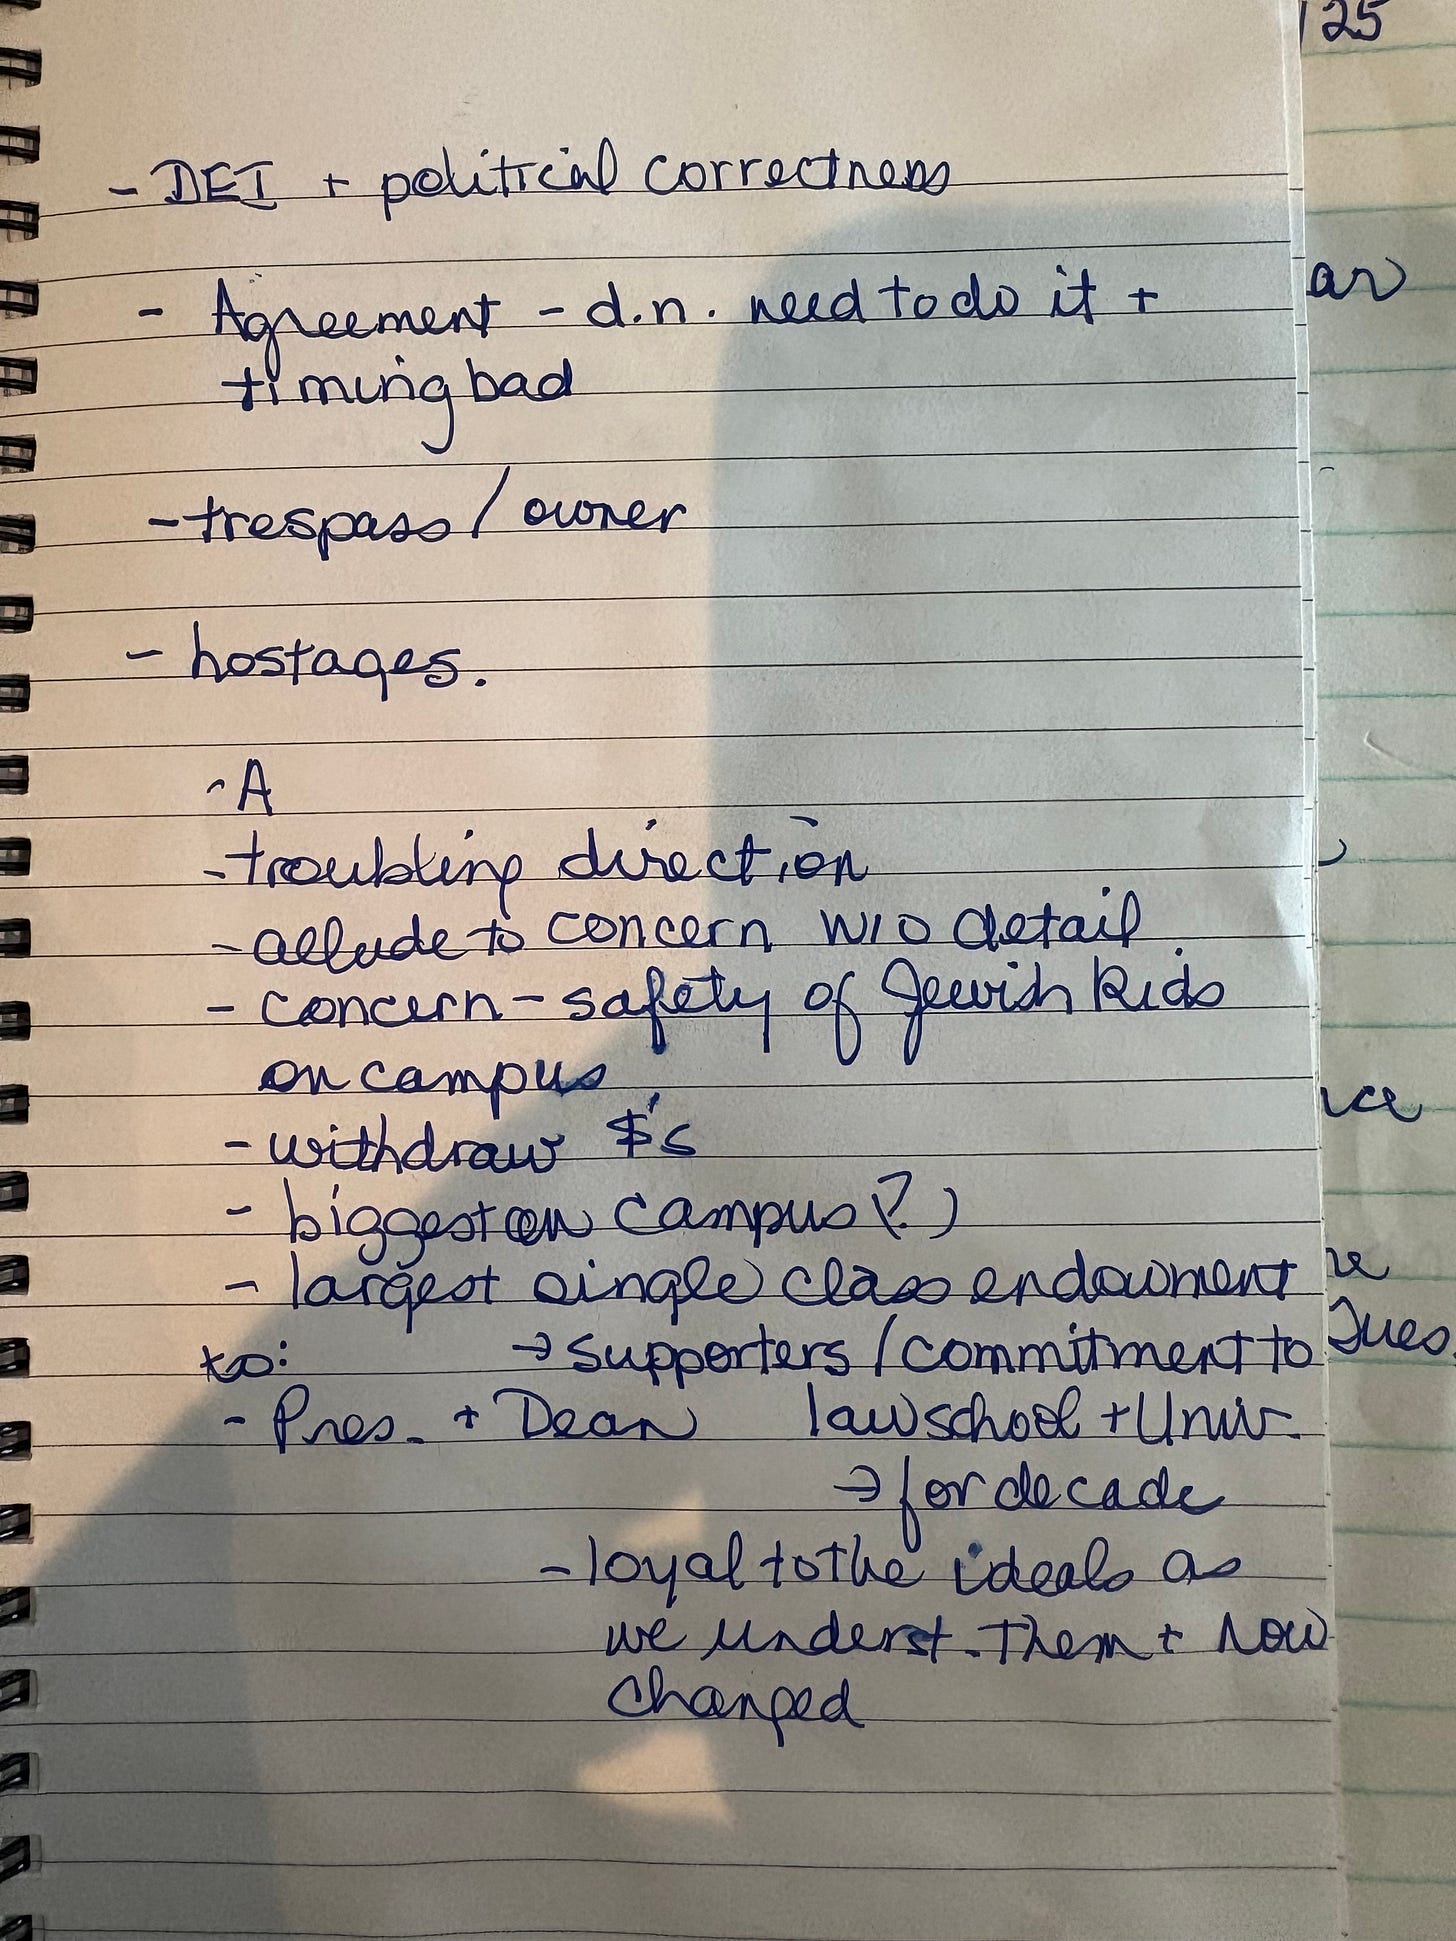 125
- DEI + political correctness
- Agreement - d.n. need to do it +
timing bad
- trespass / owner
- hostages.
- A
- troubling direction
- allude to concern w/o detail.
- concern - safety of Jewish kids
on campus
- withdraw $'s
- biggest on campus (?)
- largest single class endowment
to: → supporters / commitment to
- Pres. + Dean law school + Univ.
→ for decade
- loyal to the ideals as
we underst. them + now
changed